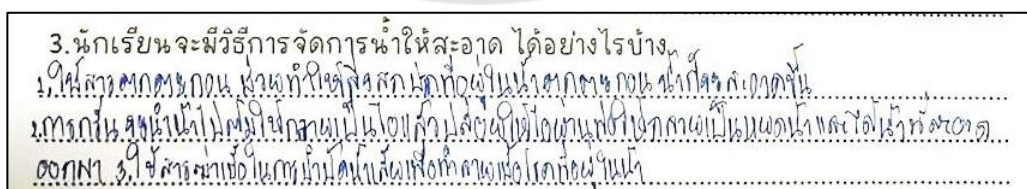 3.นักเรียนจะมีวิธีการจัดการน้ำให้สะอาด ได้อย่างไรบ้าง
1.ใช้สารตกตะกอน ช่วยทำให้สิ่งสกปรกที่อยู่ในน้ำตกตะกอน น้ำก็จะสะอาดขึ้น
2.การกรั่น จะนำน้ำไปต้มให้กลายเป็นไอแล้วปล่อยให้ไอผ่านท่อให้กลายเป็นหยดน้ำและได้น้ำที่สะอาด
ออกมา 3.ใช้สารฆ่าเชื้อในการบำบัดน้ำเสียเพื่อทำลายเชื้อโรคที่อยู่ในน้ำ